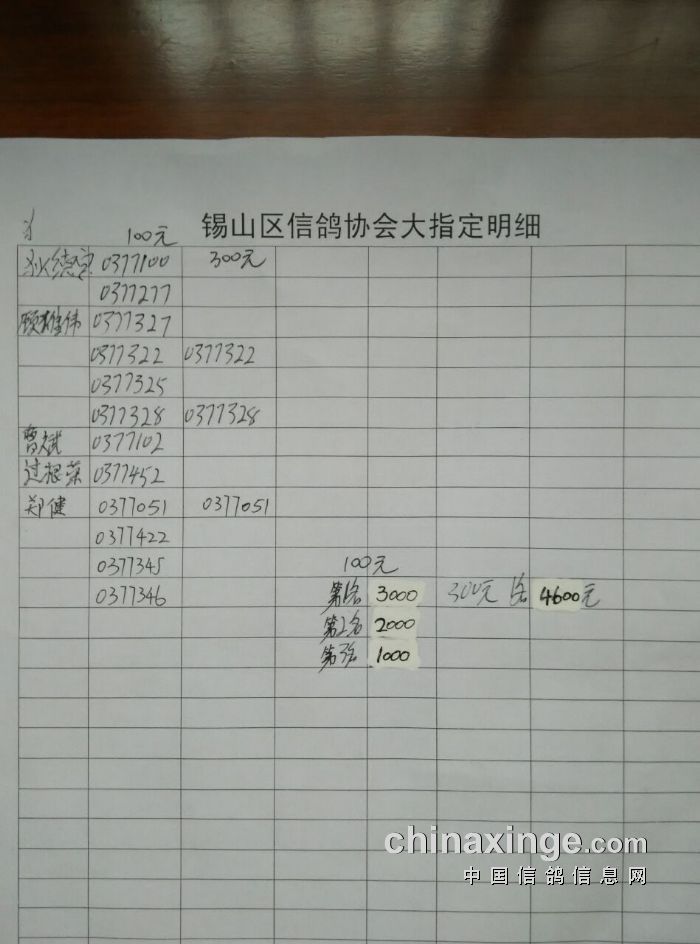 锡山区信鸽协会大指定明细
100元
0377100 300元
0377277
顾雄伟 0377327
0377322 0377322
0377325
0377328 0377328
曹斌 0377102
过根荣 0377452
郑健 0377051 0377051
0377422
0377345 100元
0377346 第1名 3000 300元 1名 4600元
第2名 2000
第3名 1000
chinaxinge.com
中国信鸽信息网